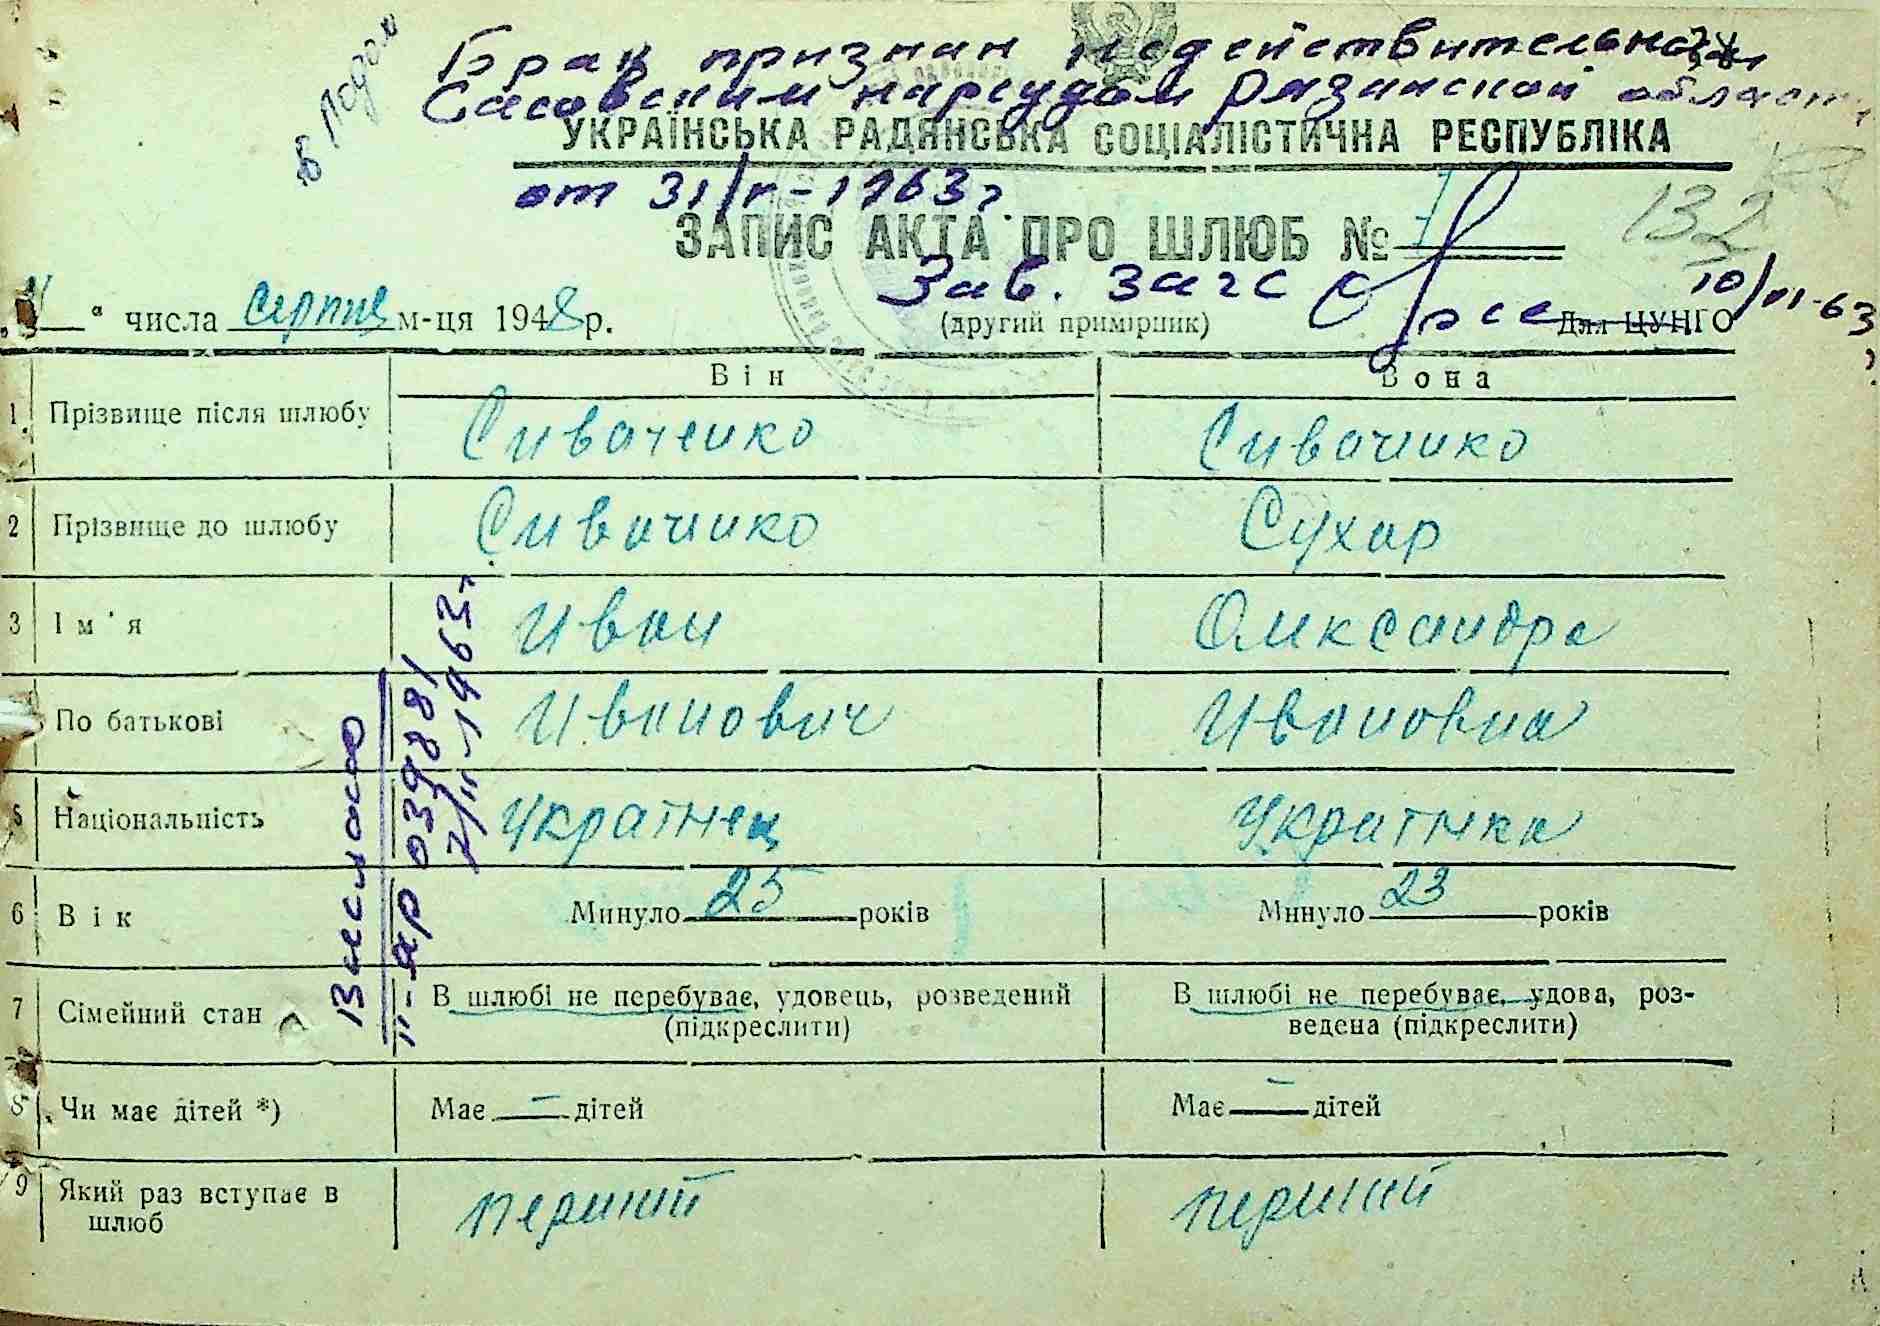 Брак признан недействительным
Сасовским нарсудом Рязанской области
УКРАЇНСЬКА РАДЯНСЬКА СОЦІАЛІСТИЧНА РЕСПУБЛІКА
от 31/V-1963г
ЗАПИС АКТА ПРО ШЛЮБ № 7
132
Зав. загс
10/VI-63
" числа серпня м-ця 1948 р.
(другий примірник)
Для ЦУНГО
Він
Вона
1. Прізвище після шлюбу Сиваченко Сиваченко
2 Прізвище до шлюбу Сиваченко Сухар
3 Ім'я Иван Олександра
По батькові Иванович Ивановна
5 Національність Українец Українка
6 Вік Минуло 25 років Минуло 23 років
7 Сімейний стан В шлюбі не перебуває, удовець, розведений (підкреслити) В шлюбі не перебуває, удова, роз-
ведена (підкреслити)
8 Чи має дітей *) Має — дітей Має — дітей
9 Який раз вступає в
шлюб перший перший
Выслано
039881
1963г